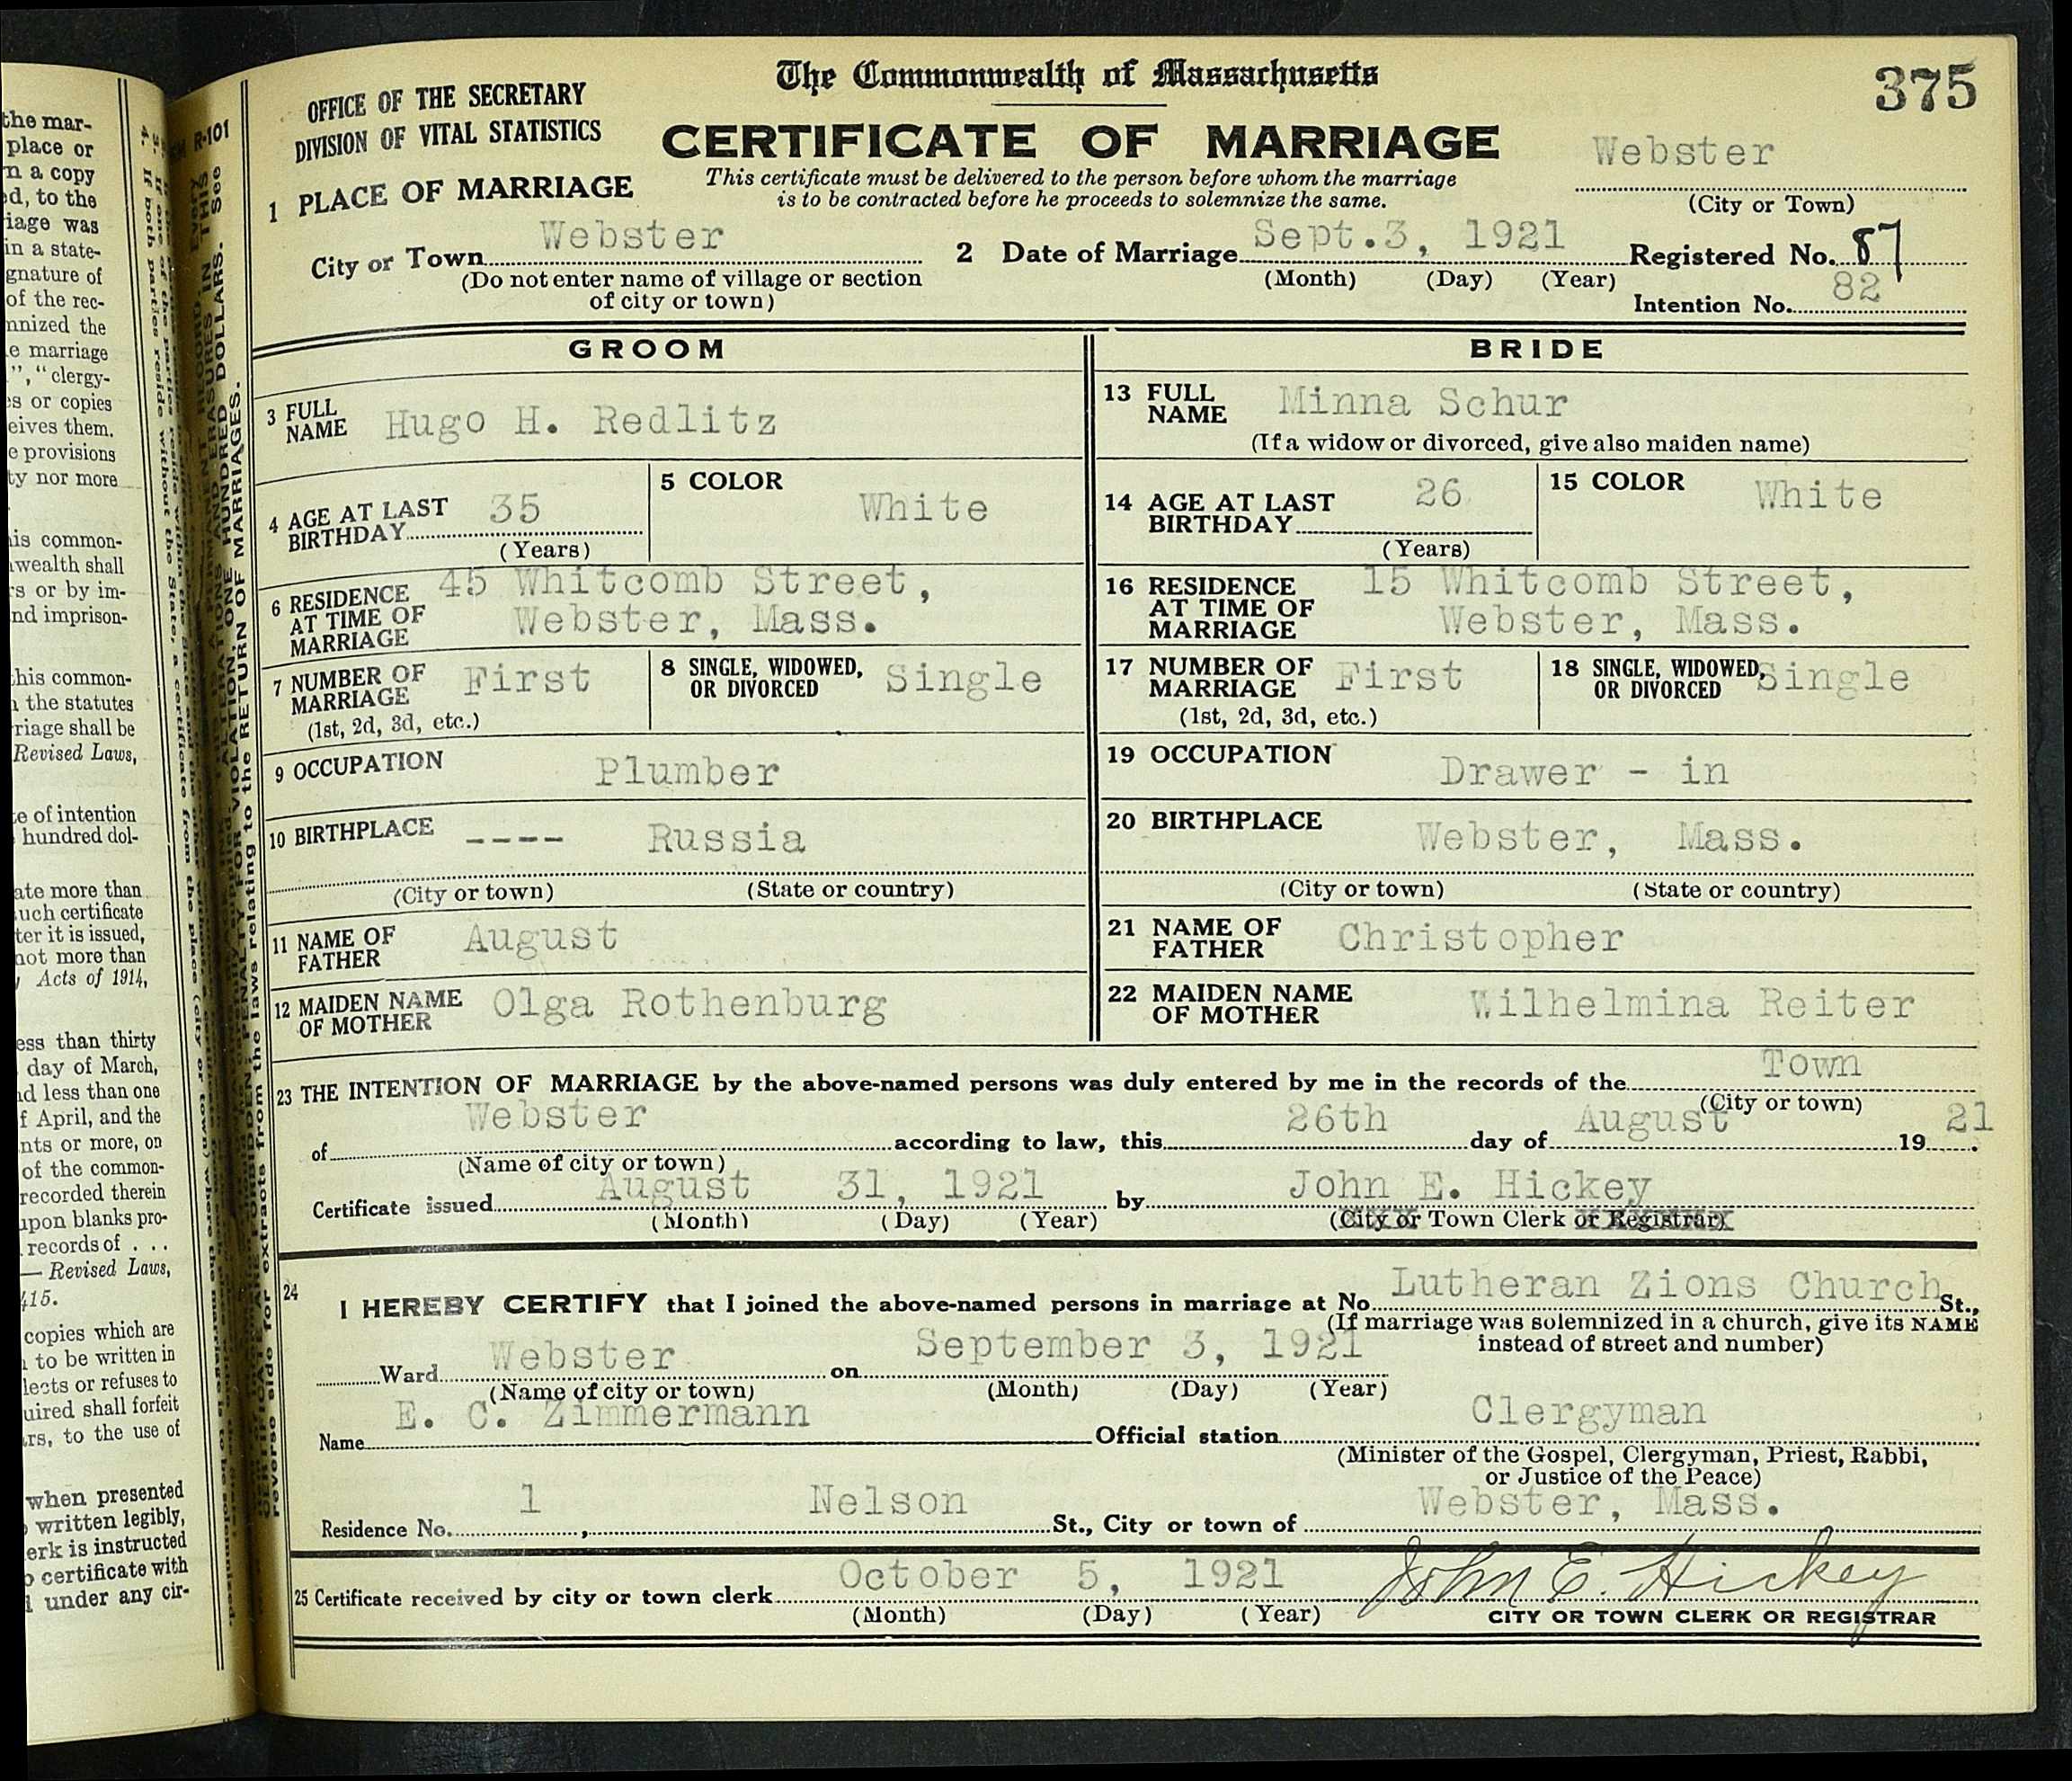 the mar-
place or
n a copy
ed, to the
iage was
in a state-
gnature of
of the rec-
nnized the
e marriage
", "clergy-
es or copies
eives them.
e provisions
ty nor more
his common-
wealth shall
rs or by im-
nd imprison-
his common-
the statutes
riage shall be
Revised Laws,
te of intention
hundred dol-
ate more than
uch certificate
ter it is issued,
not more than
Acts of 1914,
ess than thirty
day of March,
nd less than one
f April, and the
nts or more, on
of the common-
recorded therein
upon blanks pro-
records of . . .
— Revised Laws,
415.
copies which are
to be written in
lects or refuses to
uired shall forfeit
rs, to the use of
when presented
written legibly,
erk is instructed
certificate with
under any cir-
4. If both parties reside without the State, a certificate from the place (city or town) where the marriage is to be
reverse side for extracts from the laws relating to the RETURN OF MARRIAGES.
R-101
375
The Commonwealth of Massachusetts
OFFICE OF THE SECRETARY
DIVISION OF VITAL STATISTICS
CERTIFICATE OF MARRIAGE
This certificate must be delivered to the person before whom the marriage
is to be contracted before he proceeds to solemnize the same.
Webster
(City or Town)
1 PLACE OF MARRIAGE
City or Town Webster
(Do not enter name of village or section
of city or town)
2 Date of Marriage Sept.3, 1921
(Month) (Day) (Year)
Registered No. 87
Intention No. 82
GROOM
3 FULL NAME Hugo H. Redlitz
4 AGE AT LAST BIRTHDAY 35
(Years)
5 COLOR White
6 RESIDENCE AT TIME OF MARRIAGE 45 Whitcomb Street,
Webster, Mass.
7 NUMBER OF MARRIAGE First
(1st, 2d, 3d, etc.)
8 SINGLE, WIDOWED, OR DIVORCED Single
9 OCCUPATION Plumber
10 BIRTHPLACE ---- Russia
(City or town) (State or country)
11 NAME OF FATHER August
12 MAIDEN NAME OF MOTHER Olga Rothenburg
BRIDE
13 FULL NAME Minna Schur
(If a widow or divorced, give also maiden name)
14 AGE AT LAST BIRTHDAY 26
(Years)
15 COLOR White
16 RESIDENCE AT TIME OF MARRIAGE 15 Whitcomb Street,
Webster, Mass.
17 NUMBER OF MARRIAGE First
(1st, 2d, 3d, etc.)
18 SINGLE, WIDOWED, OR DIVORCED Single
19 OCCUPATION Drawer - in
20 BIRTHPLACE Webster, Mass.
(City or town) (State or country)
21 NAME OF FATHER Christopher
22 MAIDEN NAME OF MOTHER Wilhelmina Reiter
23 THE INTENTION OF MARRIAGE by the above-named persons was duly entered by me in the records of the Town
(City or town)
of Webster according to law, this 26th day of August 19 21.
(Name of city or town)
Certificate issued August 31, 1921 by John E. Hickey
(Month) (Day) (Year) (City or Town Clerk or Registrar)
24 I HEREBY CERTIFY that I joined the above-named persons in marriage at No. Lutheran Zions Church St.,
(If marriage was solemnized in a church, give its NAME
instead of street and number)
Ward Webster on September 3, 1921
(Name of city or town) (Month) (Day) (Year)
Name E. C. Zimmermann Official station Clergyman
(Minister of the Gospel, Clergyman, Priest, Rabbi,
or Justice of the Peace)
Residence No. 1, Nelson St., City or town of Webster, Mass.
25 Certificate received by city or town clerk October 5, 1921 John E. Hickey
(Month) (Day) (Year) CITY OR TOWN CLERK OR REGISTRAR